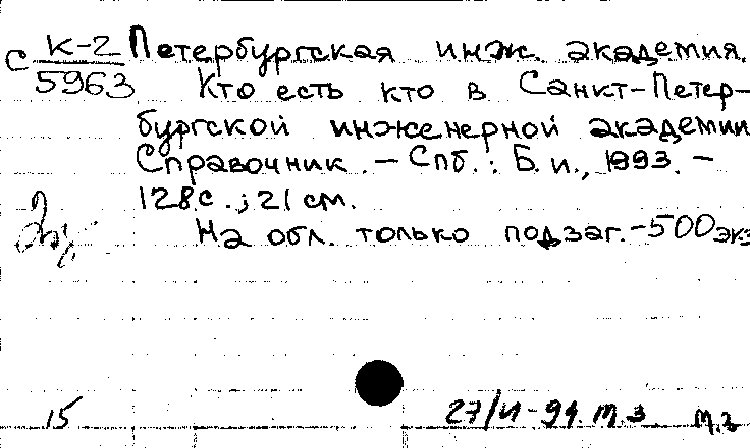 с К-2 Петербургская инж. академия.
5963 Кто есть кто в Санкт-Петер-
бургской инженерной академии
Справочник. - Спб.: Б.и., 1993. -
128с.; 21 см.
На обл. только подзаг. - 500 экз
15 27/VI-94. м.з м.з